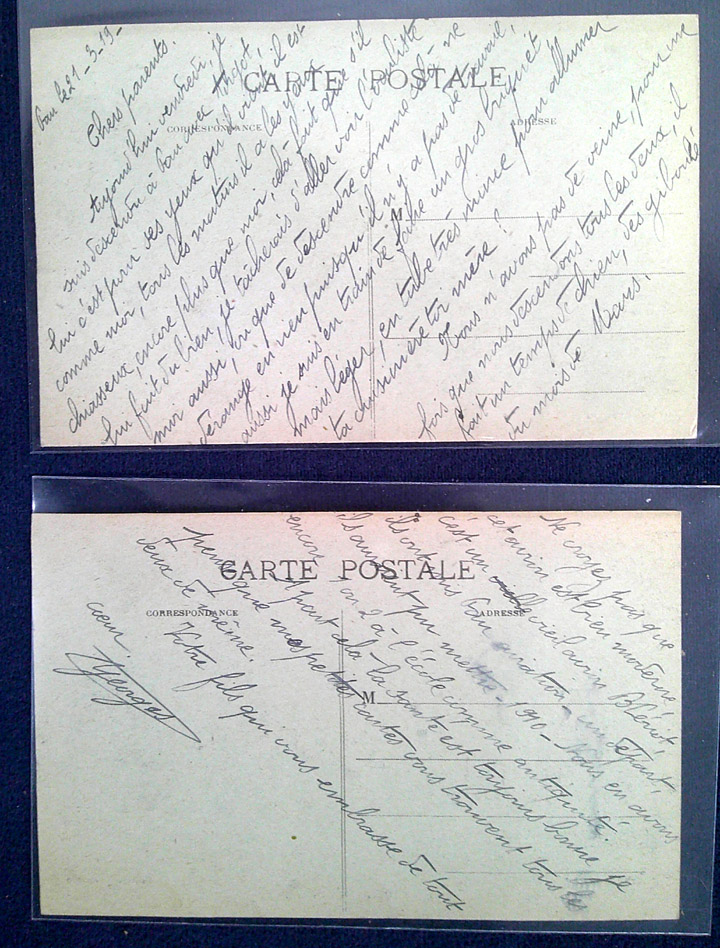 CARTE POSTALE
CORRESPONDANCE
ADRESSE
M
Pau le 21-3-19-
Chers parents.
Aujourd'hui vendredi, je
suis descendu à Pau avec
lui c'est pour ses yeux qu'il vient il est
comme moi, tous les matins il a les yeux
chiasseux, encore plus que moi, celà fait que s'il
lui fait du bien, je tâcherais d'aller voir l'oculiste
moi aussi, vu que de descendre comme celà ne
dérange en rien puisqu'il n'y a pas de travail,
aussi je suis en train de faire un gros briquet
mais léger, en tube très mince pour allumer
ta cuisinière toi mère!
Nous n'avons pas de veine, pour une
fois que nous descendons tous les deux, il
fait un temps de chien, des giboulées
du mois de Mars.
CARTE POSTALE
CORRESPONDANCE
ADRESSE
M
Ne croyez pas que
cet avion est bien moderne
c'est un vieil avion Blériot,
ils ont mis Pau aviation - un départ,
ils auraient pu mettre - 1910 - nous en avons
encore un 2 à l'école comme antiquité.
A part celà - la santé est toujours bonne, je
pense que mes petites cartes vous trouvent tous les
deux de même.
Votre fils qui vous embrasse de tout
cœur
Georges